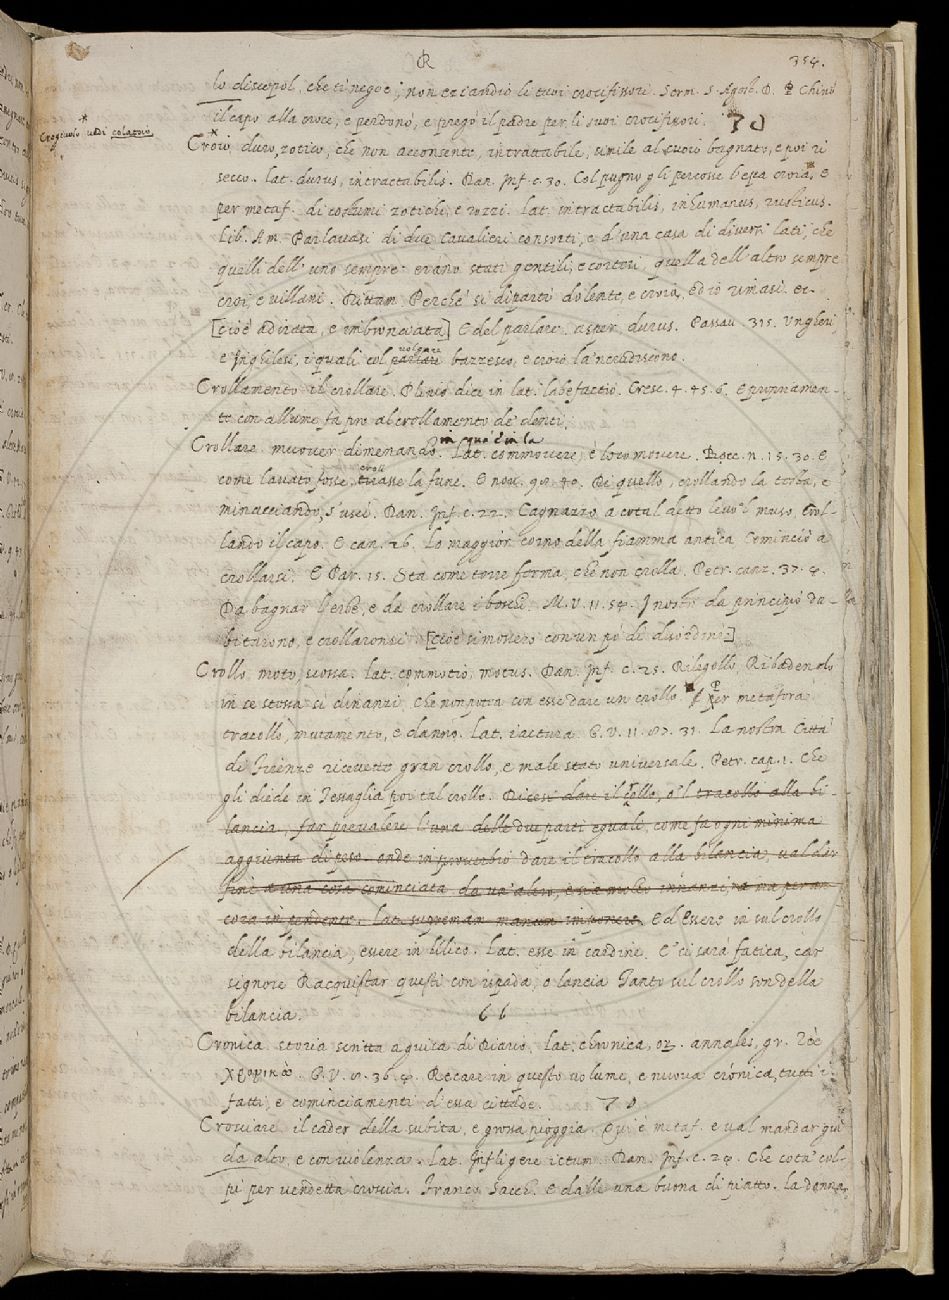 CR
354.
lo discepol, che ti negoe; non eziandio li tuoi crocifissori. Serm. S. Agost. D. Chinò
il capo alla croce, e perdonò, e pregò il padre per li suoi crocifissori. 70
Crogiuolo vedi colatoio.
Croio duro, zotico, che non acconsente, intrattabile, simile al cuoio bagnato, e poi ri
secco. lat. durus, intractabilis. Dan. Inf. c. 30. Col pugno gli percosse l'epa croia, E
per metaf. di costumi zotichi, e rozzi. lat. intractabilis, inhumanus, rusticus.
Lib. Am. Parlavasi di due Cavalieri consorti, e d'una casa di diversi lati, che
quelli dell' uno sempre erano stati gentili, e cortesi, quella dell' altro sempre
croi, e villani. Rittam. Perchè si dipartò dolente, e croia, ed io rimasi. ec.
[cioè adirata, e imbronciata] E del parlare. asper, durus. Passau. 315. Ungheri
e Inghilesi, i quali col volgare parlare bazzesco, e croio la 'ncrudiscono.
Crollamento il crollare. Plinio dice in lat. labefactio. Cresc. 4. 45. 6. E pugnamen-
to con allume fa pro al crollamento de' denti.
Crollare muover dimenando in qua è in la. Lat. commovere, è loco movere. Bocc. n. 15. 30. E
come lavato fosse, croll tirasse la fune. E nou. 98. 40. Di quello, crollando la testa, e
minacciando, s' uscì. Dan. Inf. c. 22. Cagnazzo a cotal detto levò 'l muso, Crol-
lando il capo. E can. 26. Lo maggior corno della fiamma antica Cominciò a
crollarsi. E Par. 15. Sta come torre ferma, che non crolla. Petr. canz. 37. 4.
Da bagnar l'erbe, e da crollare i boschi. M. V. 11. 54. I nostri da principio du-
bitarono, e crollaronsi [cioè si mossero con un pò di disordine]
Crollo, moto, scossa. lat. commotio, motus. Dan. Inf. c. 25. Rilegollo Ribadendo
in se stessa sì dinanzi, Che non potea con esse dare un crollo. per metafora
tracollo, mutamento, e danno. Lat. iactura. G. V. 11. 87. 31. La nostra Città
di Firenze ricevette gran crollo, e male stato universale. Petr. cap. 1. Che
gli diede in Tessaglia poi tal crollo. Dicesi dare il crollo, o 'l tracollo alla bi-
lancia, far prevalere l'una delle due parti eguali, come fa ogni minima
aggiunta di peso. onde in proverbio dare il tracollo alla bilancia, val dar
fine a una cosa cominciata da un' altro, e sia molto innanzi, ma per an
cora in pendente. Lat. supremam manum imponere. Ed Essere in sul crollo
della bilancia, essere in bilico. Lat. esse in cardine. E ci sarà fatica, car
signore Racquistar questi con ispada, o lancia Tanto sul crollo son della
bilancia. 66
Cronica. storia scritta a guisa di Diario. Lat. chronica, orum. annales, gr.
χρονικὰ. G. V. 8. 36. 4. Recare in questo volume, e nuova crónica, tutti i
fatti, e cominciamenti d'essa cittade. 70
Crosciare il cader della subita, e grossa pioggia. Qui è metaf. e val mandar giù
da alto, e con violenza. Lat. Infligere ictum. Dan. Inf. c. 24. Che cotai col-
pi per vendetta croscia. Franco Sacch. E dalle una buona di piatto. la donna